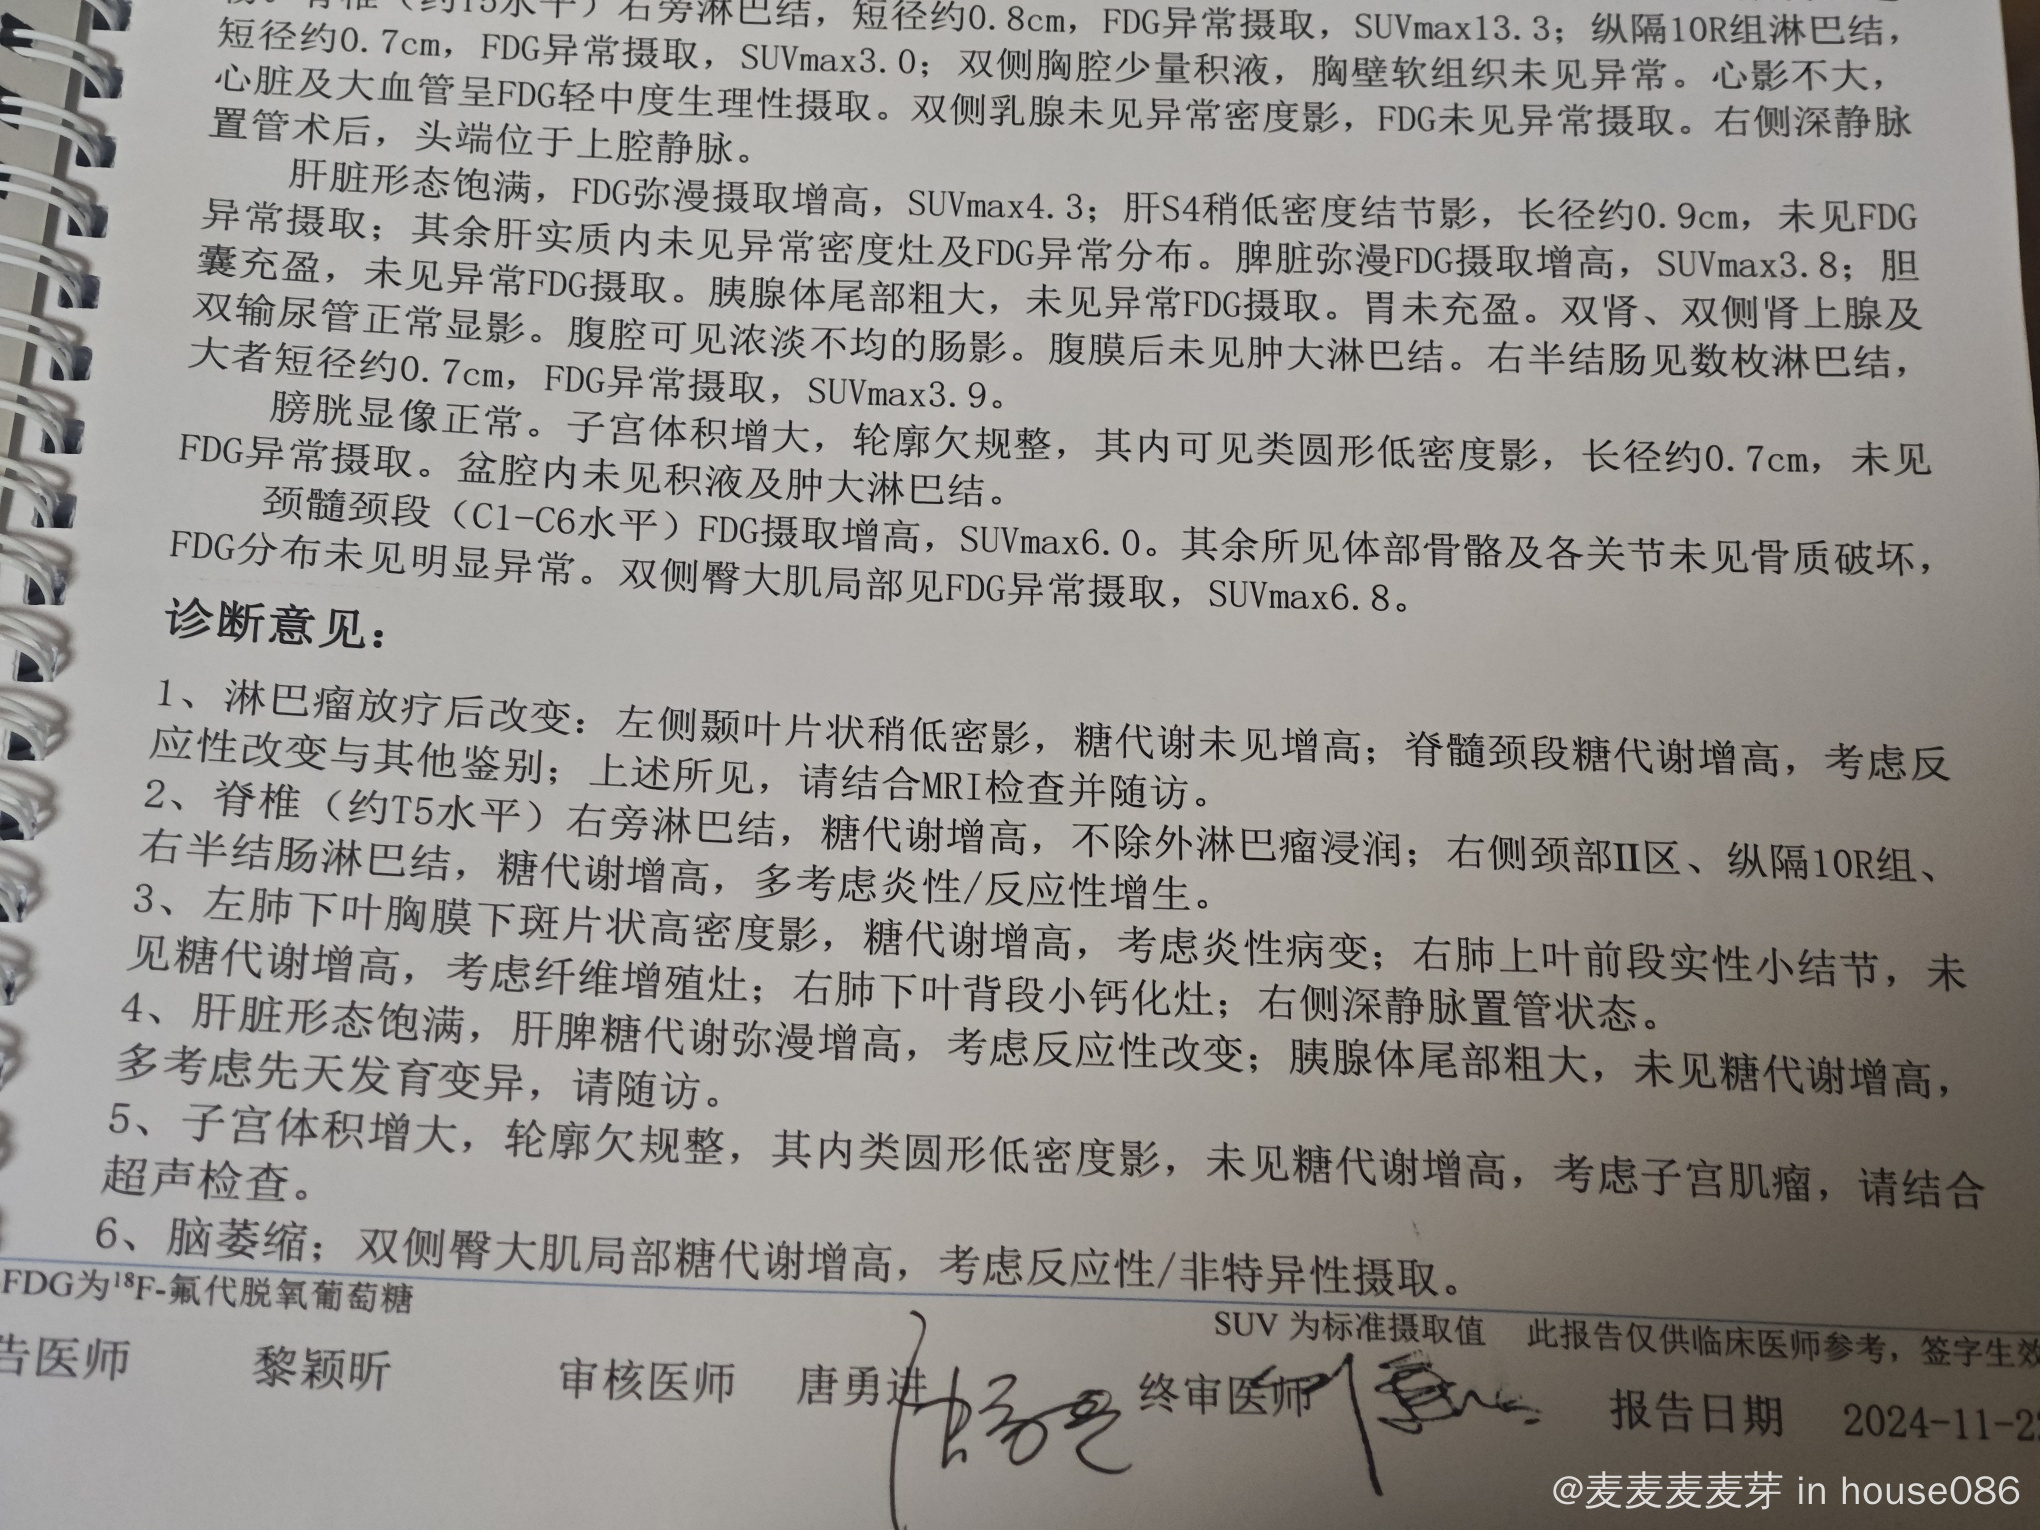 脊椎（约T5水平）右旁淋巴结，短径约0.8cm，FDG异常摄取，SUVmax13.3；纵隔10R组淋巴结，
短径约0.7cm，FDG异常摄取，SUVmax3.0；双侧胸腔少量积液，胸壁软组织未见异常。心影不大，
心脏及大血管呈FDG轻中度生理性摄取。双侧乳腺未见异常密度影，FDG未见异常摄取。右侧深静脉
置管术后，头端位于上腔静脉。
肝脏形态饱满，FDG弥漫摄取增高，SUVmax4.3；肝S4稍低密度结节影，长径约0.9cm，未见FDG
异常摄取；其余肝实质内未见异常密度灶及FDG异常分布。脾脏弥漫FDG摄取增高，SUVmax3.8；胆
囊充盈，未见异常FDG摄取。胰腺体尾部粗大，未见异常FDG摄取。胃未充盈。双肾、双侧肾上腺及
双输尿管正常显影。腹腔可见浓淡不均的肠影。腹膜后未见肿大淋巴结。右半结肠见数枚淋巴结，
大者短径约0.7cm，FDG异常摄取，SUVmax3.9。
膀胱显像正常。子宫体积增大，轮廓欠规整，其内可见类圆形低密度影，长径约0.7cm，未见
FDG异常摄取。盆腔内未见积液及肿大淋巴结。
颈髓颈段（C1-C6水平）FDG摄取增高，SUVmax6.0。其余所见体部骨骼及各关节未见骨质破坏，
FDG分布未见明显异常。双侧臀大肌局部见FDG异常摄取，SUVmax6.8。
诊断意见：
1、淋巴瘤放疗后改变：左侧颞叶片状稍低密影，糖代谢未见增高；脊髓颈段糖代谢增高，考虑反
应性改变与其他鉴别；上述所见，请结合MRI检查并随访。
2、脊椎（约T5水平）右旁淋巴结，糖代谢增高，不除外淋巴瘤浸润；右侧颈部II区、纵隔10R组、
右半结肠淋巴结，糖代谢增高，多考虑炎性/反应性增生。
3、左肺下叶胸膜下斑片状高密度影，糖代谢增高，考虑炎性病变；右肺上叶前段实性小结节，未
见糖代谢增高，考虑纤维增殖灶；右肺下叶背段小钙化灶；右侧深静脉置管状态。
4、肝脏形态饱满，肝脾糖代谢弥漫增高，考虑反应性改变；胰腺体尾部粗大，未见糖代谢增高，
多考虑先天发育变异，请随访。
5、子宫体积增大，轮廓欠规整，其内类圆形低密度影，未见糖代谢增高，考虑子宫肌瘤，请结合
超声检查。
6、脑萎缩；双侧臀大肌局部糖代谢增高，考虑反应性/非特异性摄取。
FDG为¹⁸F-氟代脱氧葡萄糖 SUV 为标准摄取值 此报告仅供临床医师参考，签字生效
告医师 黎颖昕 审核医师 唐勇进 终审医师 报告日期 2024-11-2
@麦麦麦麦芽 in house086